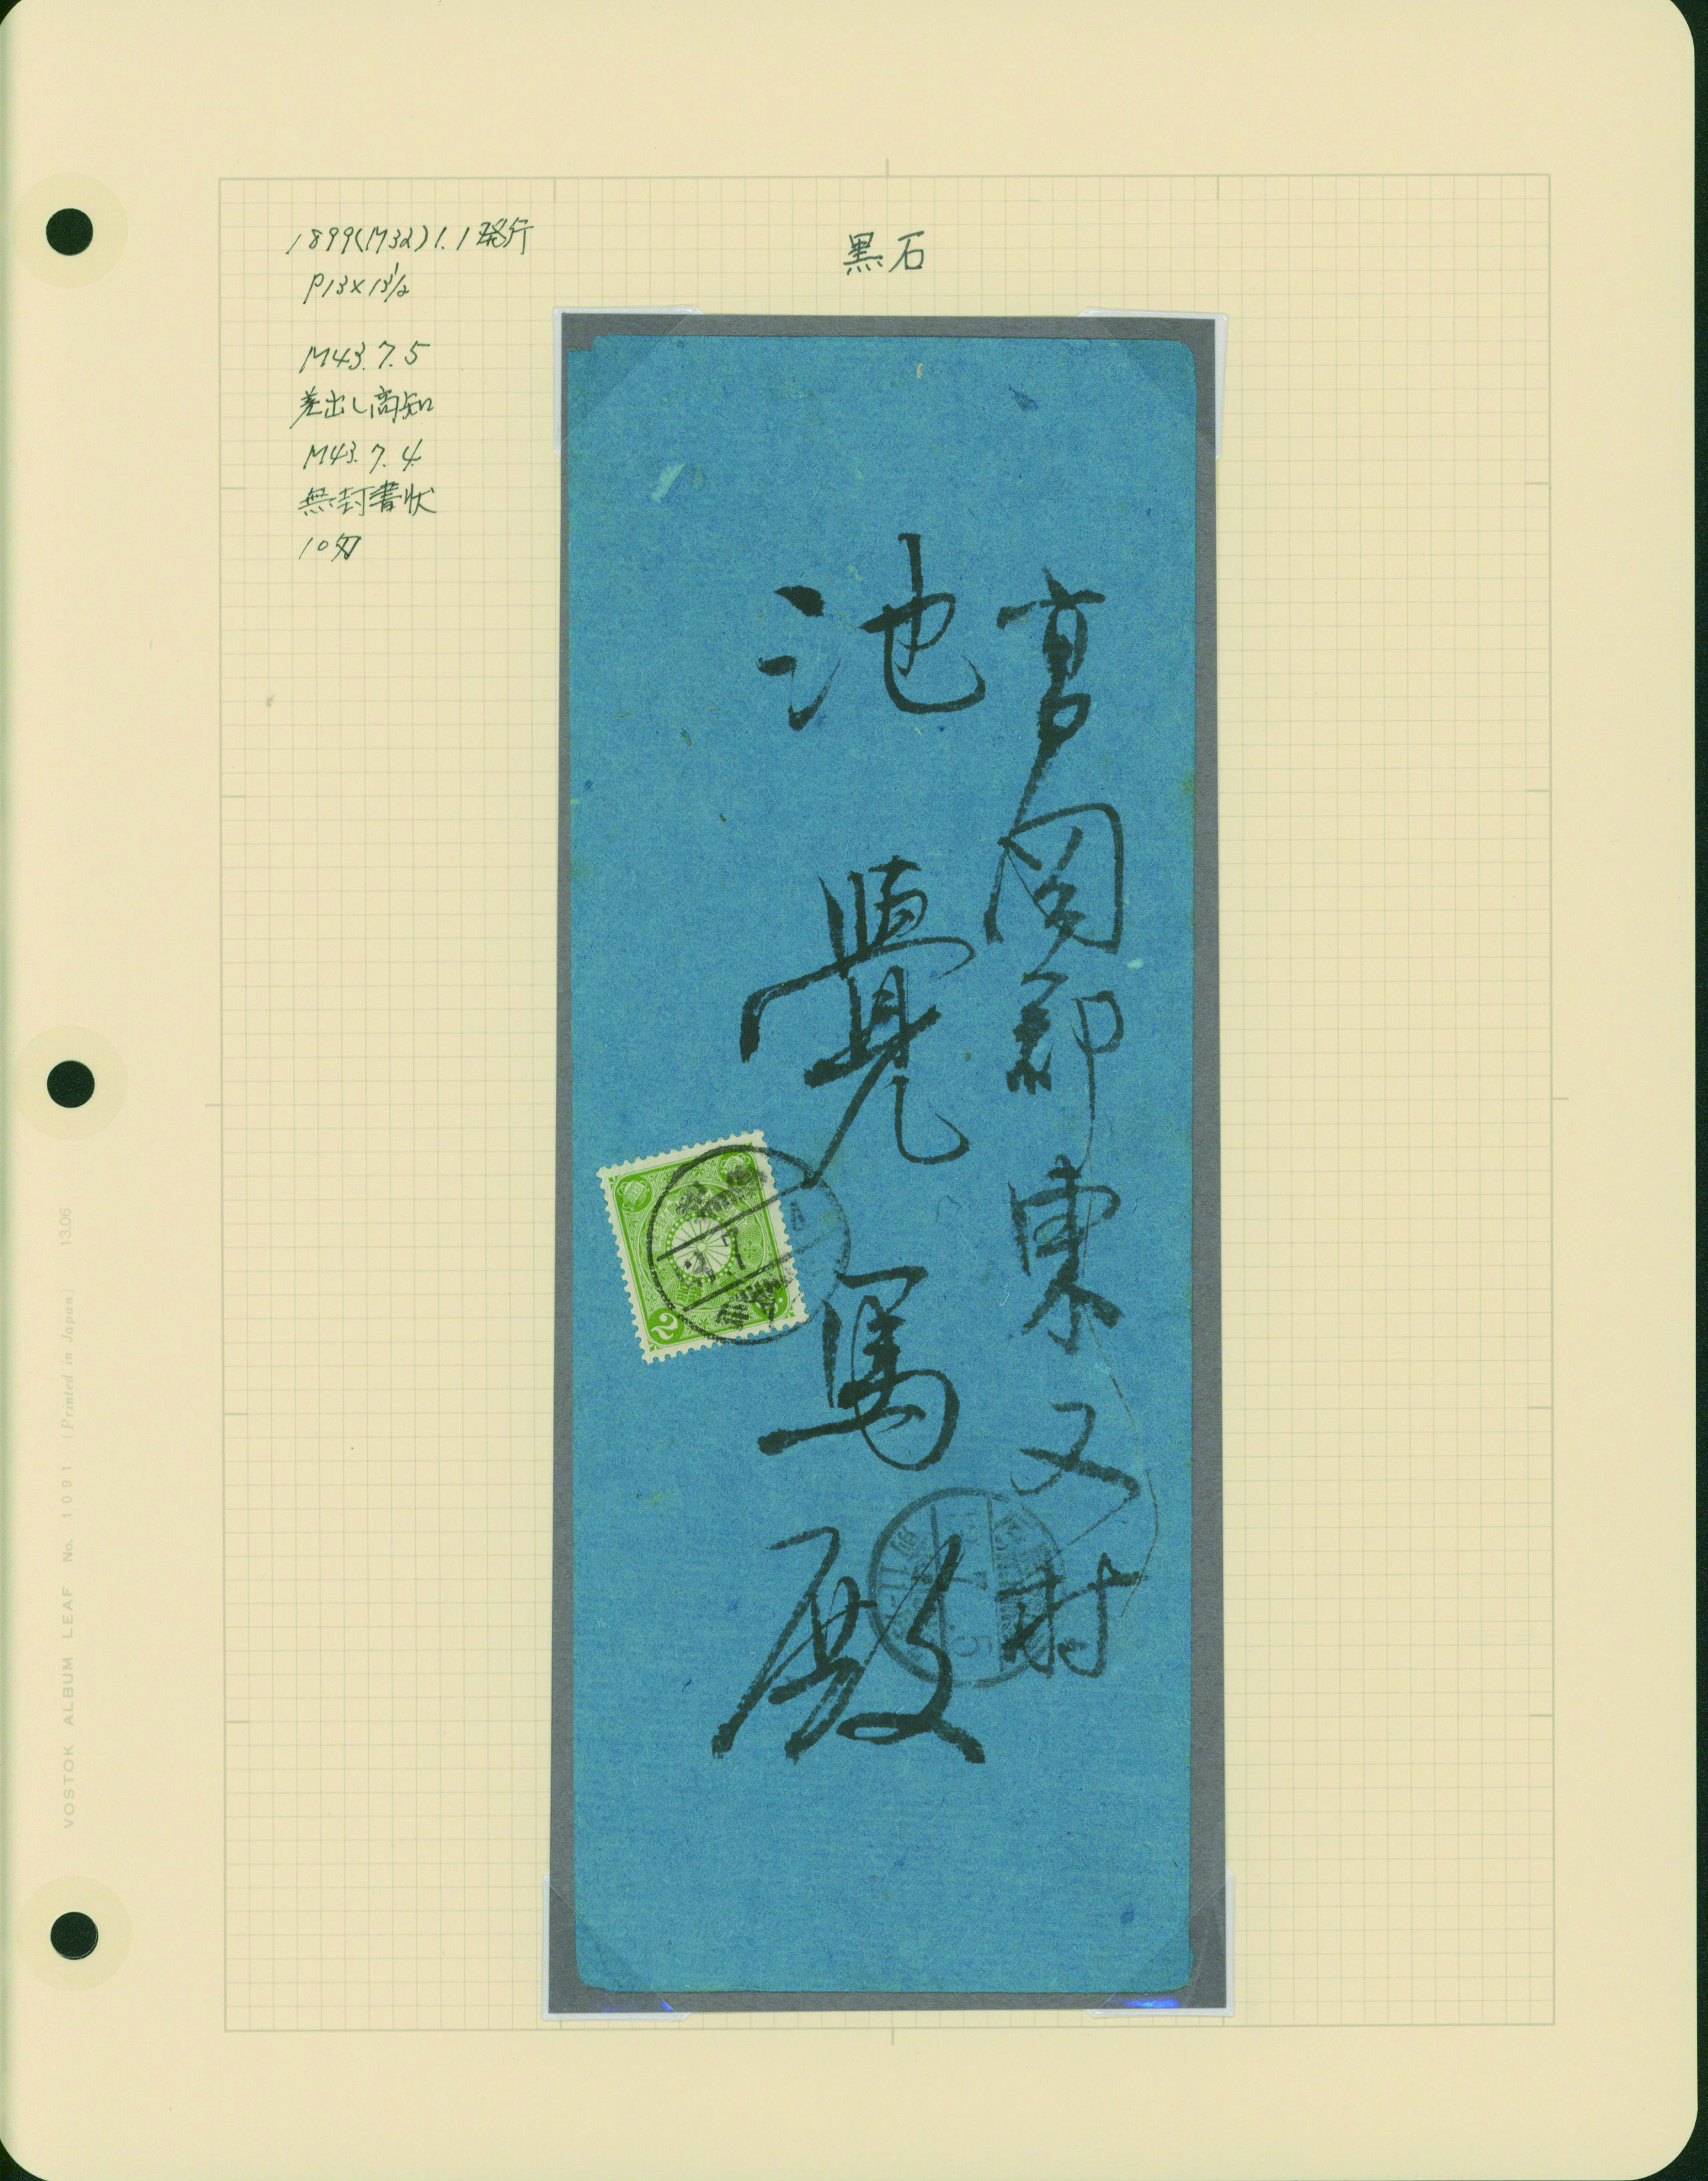 1899(M32)1.1発行
P13×13½
M43.7.5
差出し高知
M43.7.4
無封書状
10匁
黒石
高岡郡東又村
池覺馬殿
2
7
7
5
VOSTOK ALBUM LEAF No. 1091 (Printed in Japan) 13.06